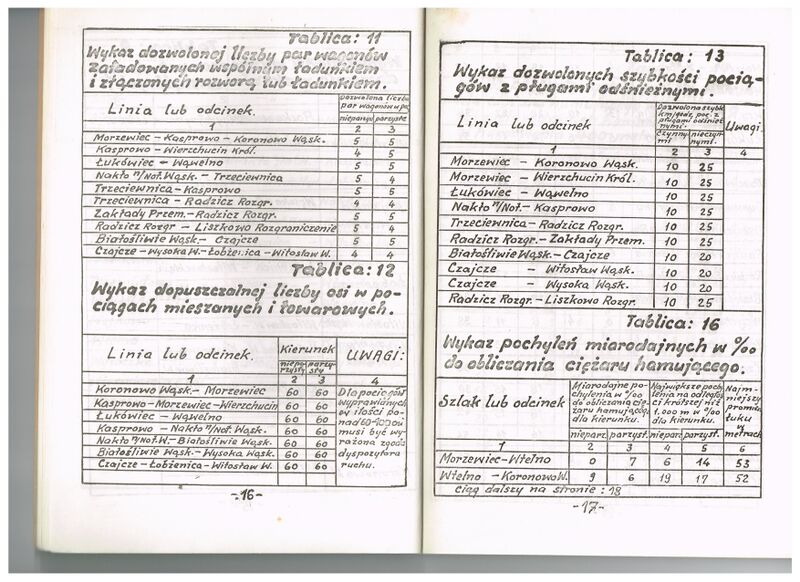 Tablica: 11
Wykaz dozwolonej liczby par wagonów
załadowanych wspólnym ładunkiem
i złączonych rozworą lub ładunkiem.
Linia lub odcinek. Dozwolona liczba par wagonów w poc.
nieparzy. parzyste
1 2 3
Morzewiec - Kasprowo - Koronowo Wąsk. 5 5
Kasprowo - Wierzchucin Król. 4 5
Łukówiec - Wąwelno 5 5
Nakło n/Not. Wąsk. - Trzeciewnica 5 5
Trzeciewnica - Kasprowo 5 5
Trzeciewnica - Radzicz Rozgr. 4 4
Zakłady Przem. - Radzicz Rozgr. 5 5
Radzicz Rozgr - Liszkowo Rozgraniczenie 5 5
Białośliwie Wąsk. - Czajcze 5 5
Czajcze - Wysoka W. - Łobżenica - Witosław W. 4 4
Tablica: 12
Wykaz dopuszczalnej liczby osi w po-
ciągach mieszanych i towarowych.
Linia lub odcinek. Kierunek UWAGI:
niepa-rzysty parzy-sty
1 2 3 4
Koronowo Wąsk. - Morzewiec 60 60
Kasprowo - Morzewiec - Wierzchucin 60 60
Łukówiec - Wąwelno 60 60
Kasprowo - Nakło n/Not. Wąsk. 60 60
Nakło n/Not. W. - Białośliwie Wąsk. 60 60
Białośliwie Wąsk. - Wysoka Wąsk. 60 60
Czajcze - Łobżenica - Witosław W. 60 60
Dla pociągów
wyprawianych
w ilości po-
nad 60-ciu osi
musi być wy-
rażona zgoda
dyspozytora
ruchu.
-16-
Tablica: 13
Wykaz dozwolonych szybkości pocią-
gów z pługami odśnieżnymi.
Linia lub odcinek Dozwolona szybk. km/godz. poc. z pługami odśnież-nymi. Uwagi.
czynny-mi nieczyn-nymi.
1 2 3 4
Morzewiec - Koronowo Wąsk. 10 25
Morzewiec - Wierzchucin Król. 10 25
Łukówiec - Wąwelno 10 25
Nakło n/Not. - Kasprowo 10 25
Trzeciewnica - Radzicz Rozgr. 10 25
Radzicz Rozgr. - Zakłady Przem. 10 25
Białośliwie Wąsk. - Czajcze 10 20
Czajcze - Witosław Wąsk. 10 20
Czajcze - Wysoka Wąsk. 10 20
Radzicz Rozgr. - Liszkowo Rozgr. 10 25
Tablica: 16
Wykaz pochyleń miarodajnych w ‰
do obliczania ciężaru hamującego.
Szlak lub odcinek Miarodajne po-chylenia w ‰ do obliczania cię-żaru hamującego dla kierunku. Największe pochy-lenia na odległoś-ci krótszej niż 1.000 m w ‰ dla kierunku. Najm-niejszy promień łuku w metrach
nieparz. parzyst. nieparz. parzyst.
1 2 3 4 5 6
Morzewiec - Wtelno 0 7 6 14 53
Wtelno - Koronowo W. 9 6 19 17 52
ciąg dalszy na stronie: 18
-17-